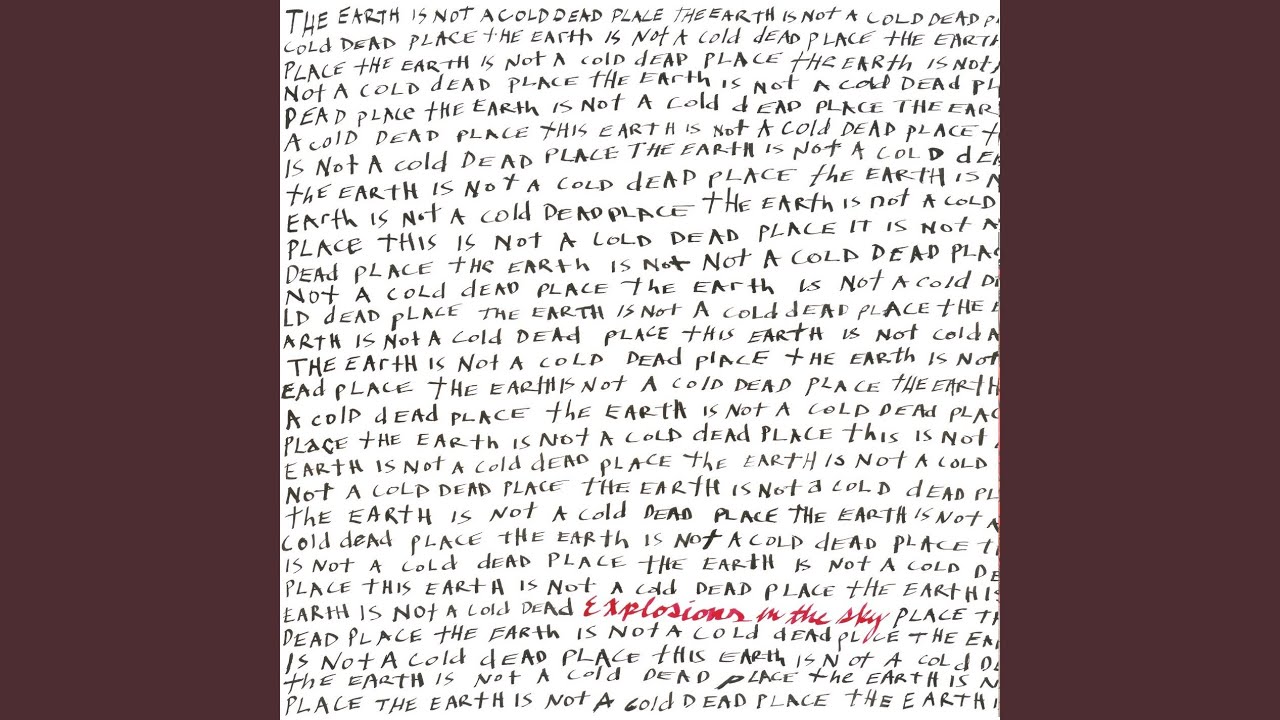 THE EARTH IS NOT A COLD DEAD PLACE THE EARTH IS NOT A COLD DEAD P
COLD DEAD PLACE THE EARTH IS NOT A COLD DEAD PLACE THE EARTH
PLACE THE EARTH IS NOT A COLD DEAD PLACE THE EARTH IS NOT
NOT A COLD DEAD PLACE THE EARTH IS NOT A COLD DEAD PL
DEAD PLACE THE EARTH IS NOT A COLD DEAD PLACE THE EAR
A COLD DEAD PLACE THIS EARTH IS NOT A COLD DEAD PLACE T
IS NOT A COLD DEAD PLACE THE EARTH IS NOT A COLD DEA
THE EARTH IS NOT A COLD DEAD PLACE THE EARTH IS N
EARTH IS NOT A COLD DEAD PLACE THE EARTH IS NOT A COLD
PLACE THIS IS NOT A COLD DEAD PLACE IT IS NOT A
DEAD PLACE THE EARTH IS NOT NOT A COLD DEAD PLAC
NOT A COLD DEAD PLACE THE EARTH IS NOT A COLD D
LD DEAD PLACE THE EARTH IS NOT A COLD DEAD PLACE THE E
ARTH IS NOT A COLD DEAD PLACE THIS EARTH IS NOT COLD A
THE EARTH IS NOT A COLD DEAD PLACE THE EARTH IS NOT
EAD PLACE THE EARTH IS NOT A COLD DEAD PLACE THE EARTH
A COLD DEAD PLACE THE EARTH IS NOT A COLD DEAD PLAC
PLACE THE EARTH IS NOT A COLD DEAD PLACE THIS IS NOT
EARTH IS NOT A COLD DEAD PLACE THE EARTH IS NOT A COLD
NOT A COLD DEAD PLACE THE EARTH IS NOT A COLD DEAD PL
THE EARTH IS NOT A COLD DEAD PLACE THE EARTH IS NOT A
COLD DEAD PLACE THE EARTH IS NOT A COLD DEAD PLACE T
IS NOT A COLD DEAD PLACE THE EARTH IS NOT A COLD DE
PLACE THIS EARTH IS NOT A COLD DEAD PLACE THE EARTH IS
EARTH IS NOT A COLD DEAD Explosions in the sky PLACE TH
DEAD PLACE THE EARTH IS NOT A COLD DEAD PLACE THE EA
IS NOT A COLD DEAD PLACE THIS EARTH IS NOT A COLD D
THE EARTH IS NOT A COLD DEAD PLACE THE EARTH IS N
PLACE THE EARTH IS NOT A COLD DEAD PLACE THE EARTH I